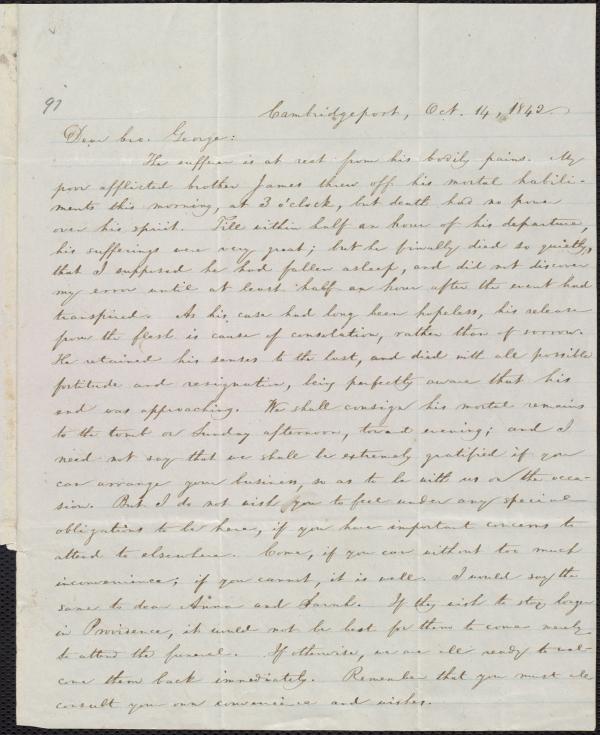 97
Cambridgeport, Oct. 14, 1842.
Dear bro. George:
The sufferer is at rest from his bodily pains. My
poor afflicted brother James threw off his mortal habili-
ments this morning, at 3 o'clock, but death had no power
over his spirit. Till within half an hour of his departure,
his sufferings were very great; but he finally died so quietly,
that I supposed he had fallen asleep, and did not discover
my error until at least half an hour after the event had
transpired. As his case had long been hopeless, his release
from the flesh is cause of consolation, rather than of sorrow.
He retained his senses to the last, and died with all possible
fortitude and resignation, being perfectly aware that his
end was approaching. We shall consign his mortal remains
to the tomb on Sunday afternoon, toward evening; and I
need not say that we shall be extremely gratified if you
can arrange your business, so as to be with us on the occa-
sion. But I do not wish you to feel under any special
obligations to be here, if you have important concerns to
attend to elsewhere. Come, if you can without too much
inconvenience; if you cannot, it is well. I would say the
same to dear Anna and Sarah. If they wish to stay longer
in Providence, it would not be best for them to come merely
to attend the funeral. If otherwise, we are all ready to wel-
come them back immediately. Remember that you must all
consult your own convenience and wishes.